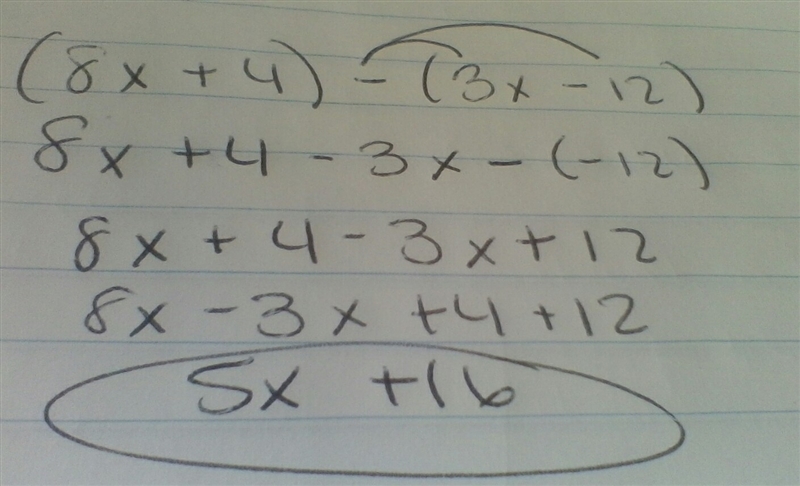 (8x + 4) - (3x - 12)
8x + 4 - 3x - (-12)
8x + 4 - 3x + 12
8x - 3x + 4 + 12
5x + 16